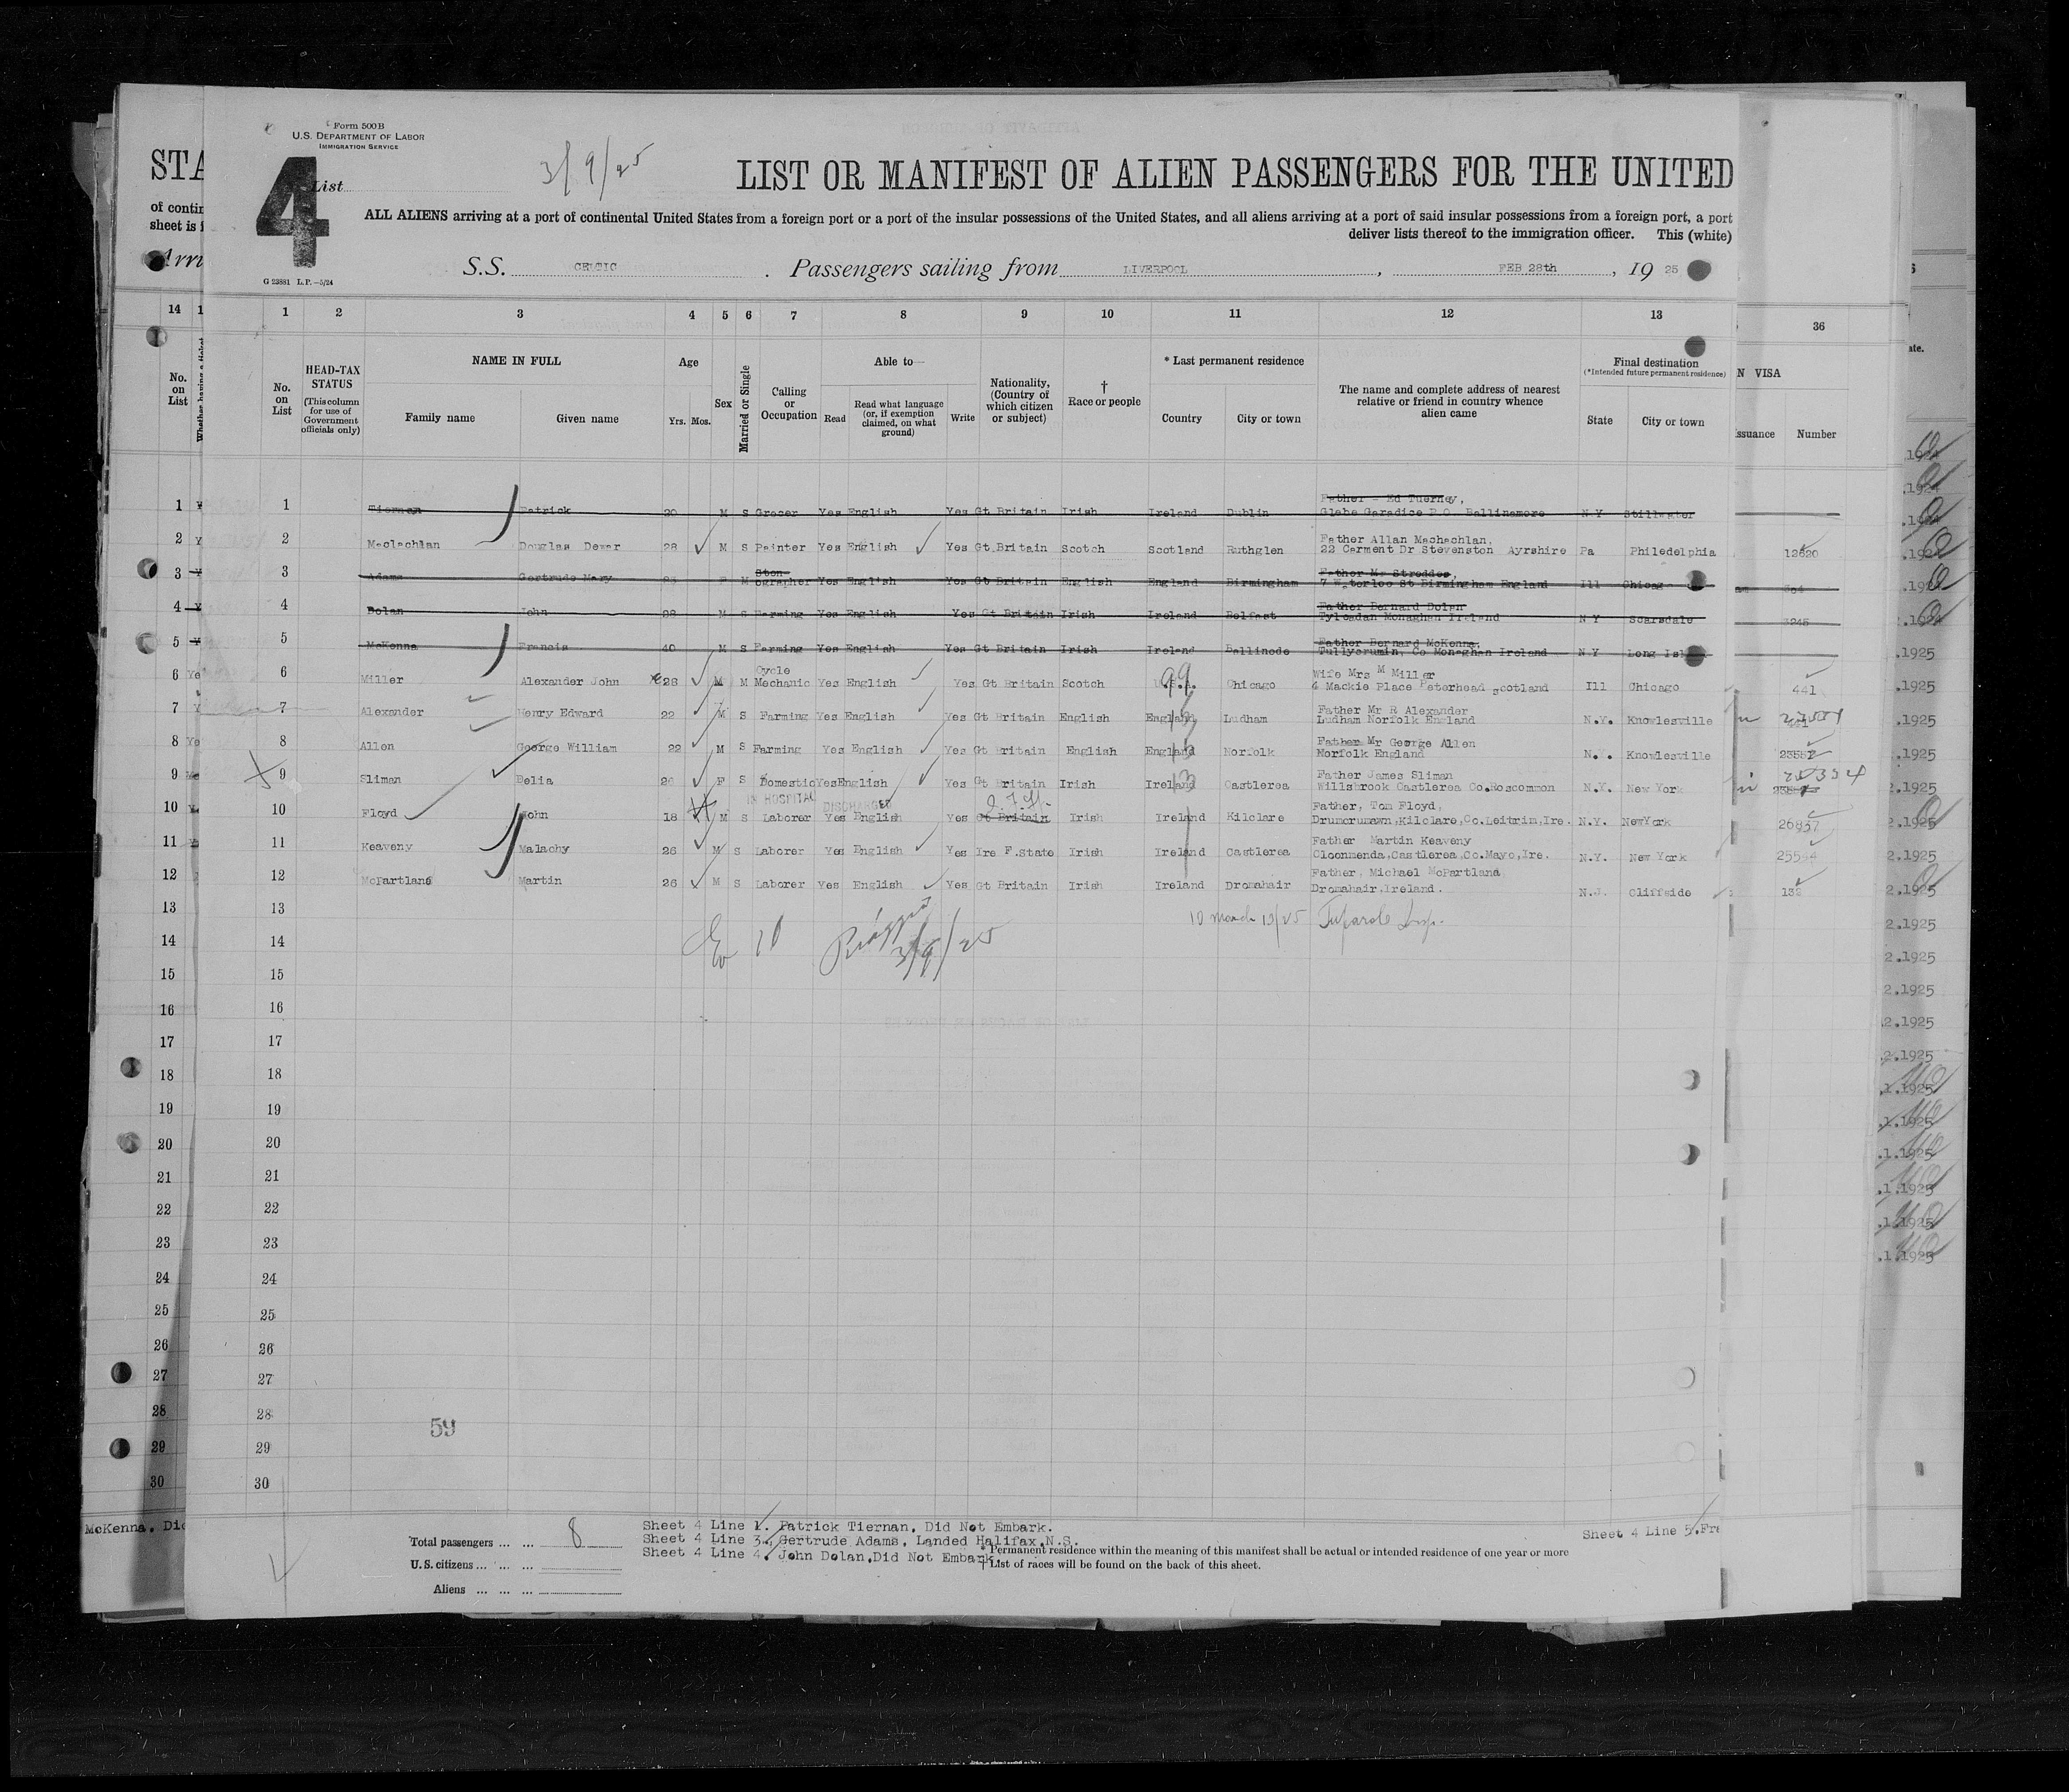 Form 500B
U.S. DEPARTMENT OF LABOR
IMMIGRATION SERVICE
4
List
3/9/25
LIST OR MANIFEST OF ALIEN PASSENGERS FOR THE UNITED
STA
of contin
sheet is
Arri
ALL ALIENS arriving at a port of continental United States from a foreign port or a port of the insular possessions of the United States, and all aliens arriving at a port of said insular possessions from a foreign port, a port
deliver lists thereof to the immigration officer. This (white)
S.S. CELTIC. Passengers sailing from LIVERPOOL, FEB 28th, 19 25
G 23881 L.P.—5/24
14 1 2 3 4 5 6 7 8 9 10 11 12 13 36
No. on List
Whether having a ticket
No. on List
HEAD-TAX STATUS (This column for use of Government officials only)
NAME IN FULL
Family name Given name
Age
Yrs. Mos.
Sex
Married or Single
Calling or Occupation
Able to—
Read Read what language (or, if exemption claimed, on what ground) Write
Nationality, (Country of which citizen or subject)
† Race or people
* Last permanent residence
Country City or town
The name and complete address of nearest relative or friend in country whence alien came
Final destination
(*Intended future permanent residence)
State City or town
N VISA
ssuance Number
ate.
Father - Ed Tuerney,
1 1 Tiernan Patrick 20 M S Grocer Yes English Yes Gt Britain Irish Ireland Dublin Glebe Garadice P.O. Ballinamore N Y Stillwater
Father Allan Machachlan,
2 2 Maclachlan Douglas Dewar 28 M S Painter Yes English Yes Gt.Britain Scotch Scotland Ruthglen 22 Carment Dr Stevenston Ayrshire Pa Philedelphia 12820
Sten- Father Mr Stredder,
3 3 Adams Gertrude Mary F M ographer Yes English Yes Gt Britain English England Birmingham 7 Waterloo St Birmingham England Ill Chicago
Father Bernard Dolan
4 4 Dolan John 28 M S Farming Yes English Yes Gt Britain Irish Ireland Belfast Tyleadan Monaghan Ireland N Y Scarsdale 3245
Father Bernard McKenna,
5 5 McKenna Francis 40 M S Farming Yes English Yes Gt Britain Irish Ireland Ballinode Tullycrumin, Co Monaghan Ireland N Y Long Isl
Cycle 99 Wife Mrs M Miller
6 Ye 6 Miller Alexander John 28 M M Mechanic Yes English Yes Gt Britain Scotch Chicago 4 Mackie Place Peterhead Scotland Ill Chicago 441
Father Mr R Alexander
7 7 Alexander Henry Edward 22 M S Farming Yes English Yes Gt Britain English England Ludham Ludham Norfolk England N.Y. Knowlesville
Father Mr George Allen
8 Ye 8 Allen George William 22 M S Farming Yes English Yes Gt Britain English England Norfolk Norfolk England N.Y. Knowlesville
Father James Sliman
9 9 Sliman Delia 26 F S Domestic Yes English Yes Gt Britain Irish Ireland Castlerea Willsbrook Castlerea Co.Roscommon N.Y. New York
IN HOSPITAL DISCHARGED I.F.S. Father, Tom Floyd,
10 10 Floyd John 18 M S Laborer Yes English Yes Gt Britain Irish Ireland Kilclare Drumcrumawn,Kilclare,Co.Leitrim,Ire. N.Y. NewYork 26837
Father Martin Keaveny
11 11 Keaveny Malachy 26 M S Laborer Yes English Yes Ire F.State Irish Ireland Castlerea Cloonmenda,Castlerea,Co.Mayo,Ire. N.Y. New York 25554
Father, Michael McPartland
12 12 McPartland Martin 26 M S Laborer Yes English Yes Gt Britain Irish Ireland Dromahair Dromahair,Ireland. N.J. Cliffside 132
13 13
3/9/25
14 14
15 15
16 16
17 17
18 18
19 19
20 20
21 21
22 22
23 23
24 24
25 25
26 26
27 27
28 28
59
29 29
30 30
McKenna. Did
Total passengers ... ... 8
U.S. citizens ... ... ...
Aliens ... ... ...
Sheet 4 Line 1. Patrick Tiernan, Did Not Embark.
Sheet 4 Line 3. Gertrude Adams, Landed Halifax,N.S.
Sheet 4 Line 4. John Dolan,Did Not Embark
Sheet 4 Line 5.Fra
* Permanent residence within the meaning of this manifest shall be actual or intended residence of one year or more
† List of races will be found on the back of this sheet.